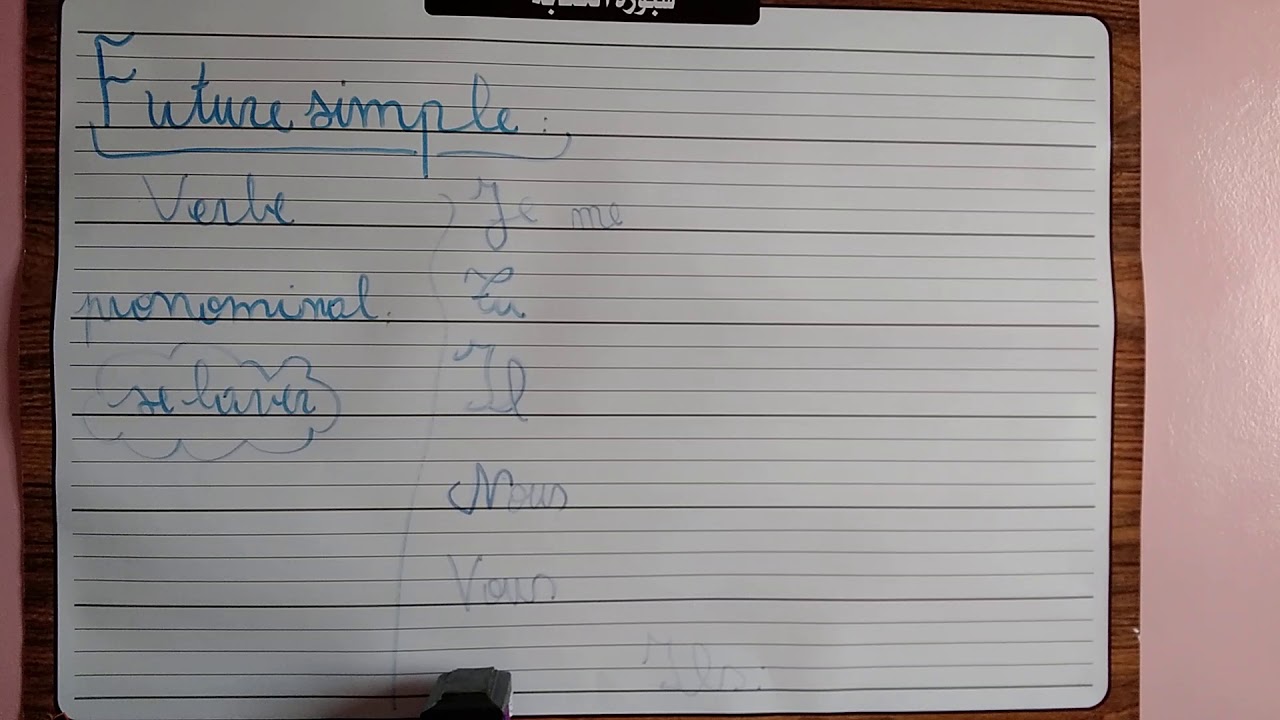 Future simple :
Verbe
pronominal.
se laver
Je me
Tu
Il
Nous
Vous
Ils.